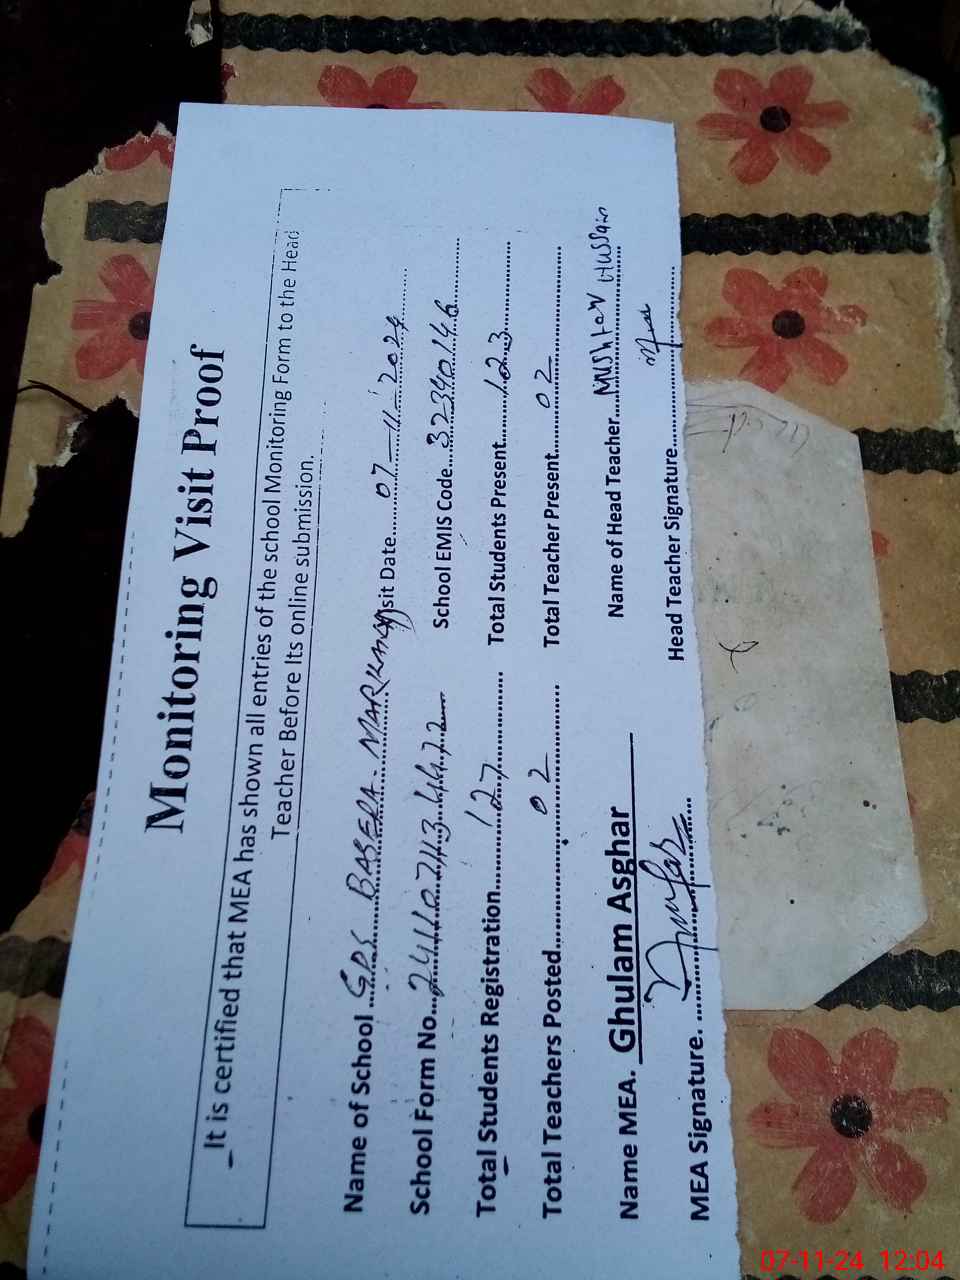 Monitoring Visit Proof
It is certified that MEA has shown all entries of the school Monitoring Form to the Head
Teacher Before Its online submission.
Name of School ...GPS BASERA. MARKAND Visit Date...07-11-2024
School Form No...24110711344 School EMIS Code...32340146
Total Students Registration...127 Total Students Present...123
Total Teachers Posted...02 Total Teacher Present...02
Name MEA. Ghulam Asghar Name of Head Teacher...Mushtav Hussain
MEA Signature. ... Head Teacher Signature...
07-11-24 12:04